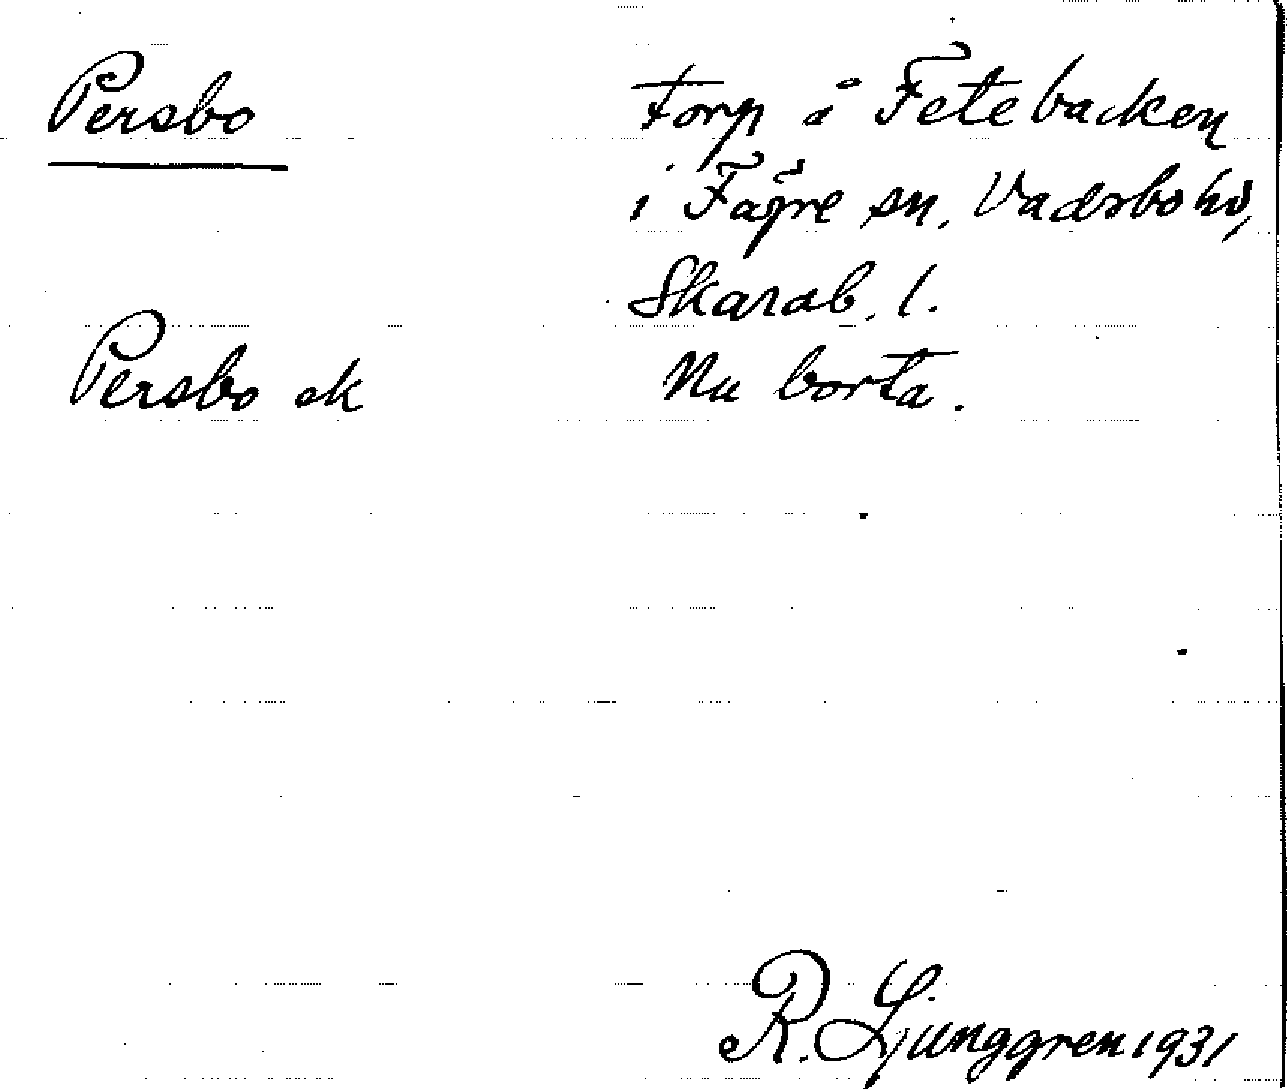 Persbo
Torp å Fetebacken
i Fägre sn, Vadsbo hd,
Skarab. l.
Persbo ek
Nu borta.
R. Ljunggren 1931